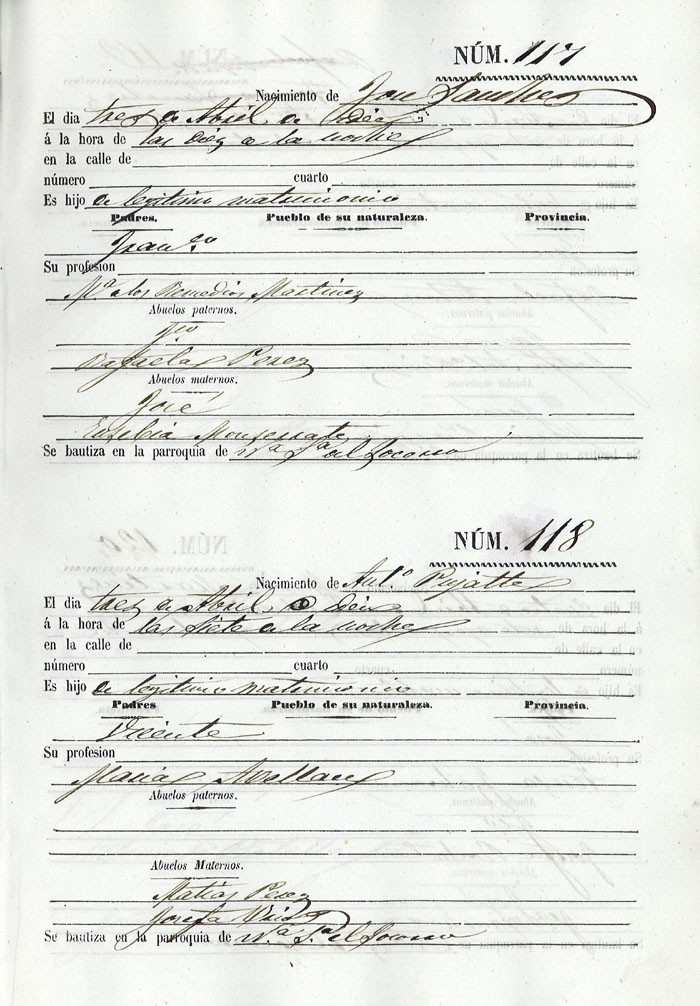 NÚM. 117
Nacimiento de José Sanchez
El dia tres de Abril a Diez
á la hora de las diez de la noche
en la calle de
número cuarto
Es hijo de legitimo matrimonio
Padres. Pueblo de su naturaleza. Provincia.
Franco
Su profesion
Mª de los Remedios Martinez
Abuelos paternos.
Rafaela Perez
Abuelos maternos.
José
Eusebia Monserrate
Se bautiza en la parroquia de Nª Sª del Socorro
NÚM. 118
Nacimiento de Antº Pujalte
El dia tres de Abril
á la hora de las siete de la noche
en la calle de
número cuarto
Es hijo de legitimo matrimonio
Padres Pueblo de su naturaleza. Provincia.
Vicente
Su profesion
Maria
Abuelos paternos.
Abuelos Maternos.
Matias Perez
Josefa
Se bautiza en la parroquia de Nª Sª del Socorro